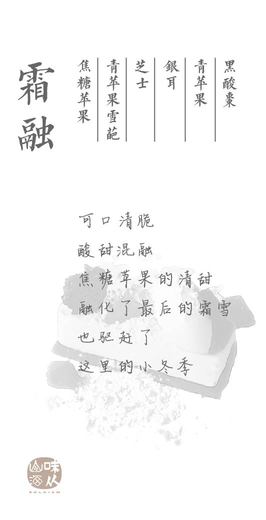 霜融
黑酸棗
青苹果
銀耳
芝士
青苹果雪葩
焦糖苹果
可口清脆
酸甜混融
焦糖苹果的清甜
融化了最后的霜雪
也驱赶了
这里的小冬季